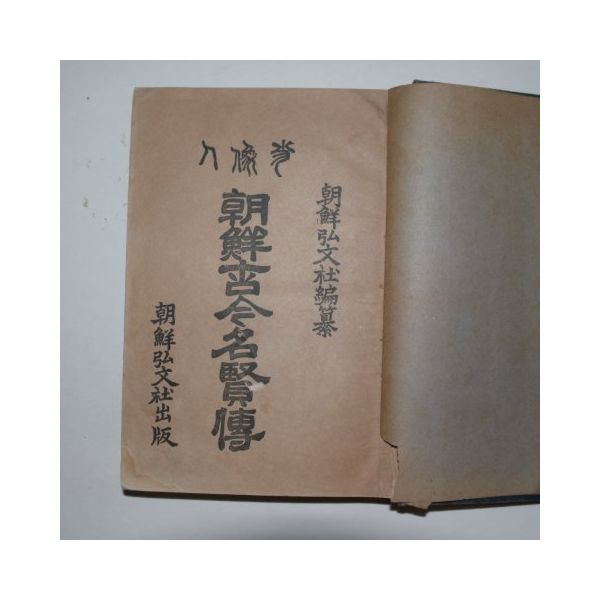 朝鮮弘文社編纂
肖像入
朝鮮古今名賢傳
朝鮮弘文社出版